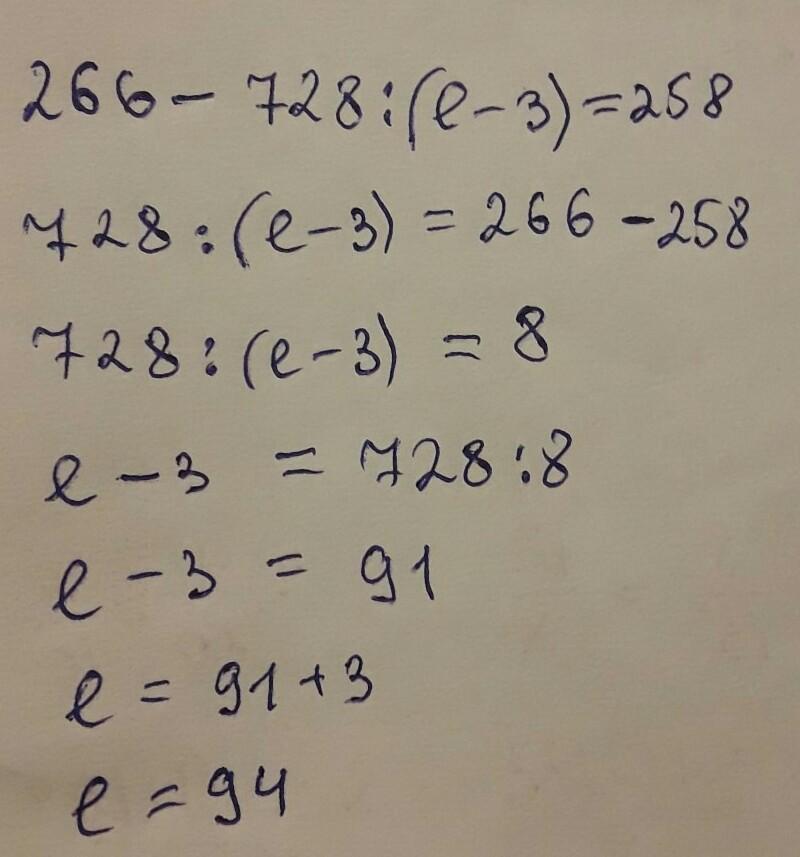 266 - 728 : (e - 3) = 258
728 : (e - 3) = 266 - 258
728 : (e - 3) = 8
e - 3 = 728 : 8
e - 3 = 91
e = 91 + 3
e = 94